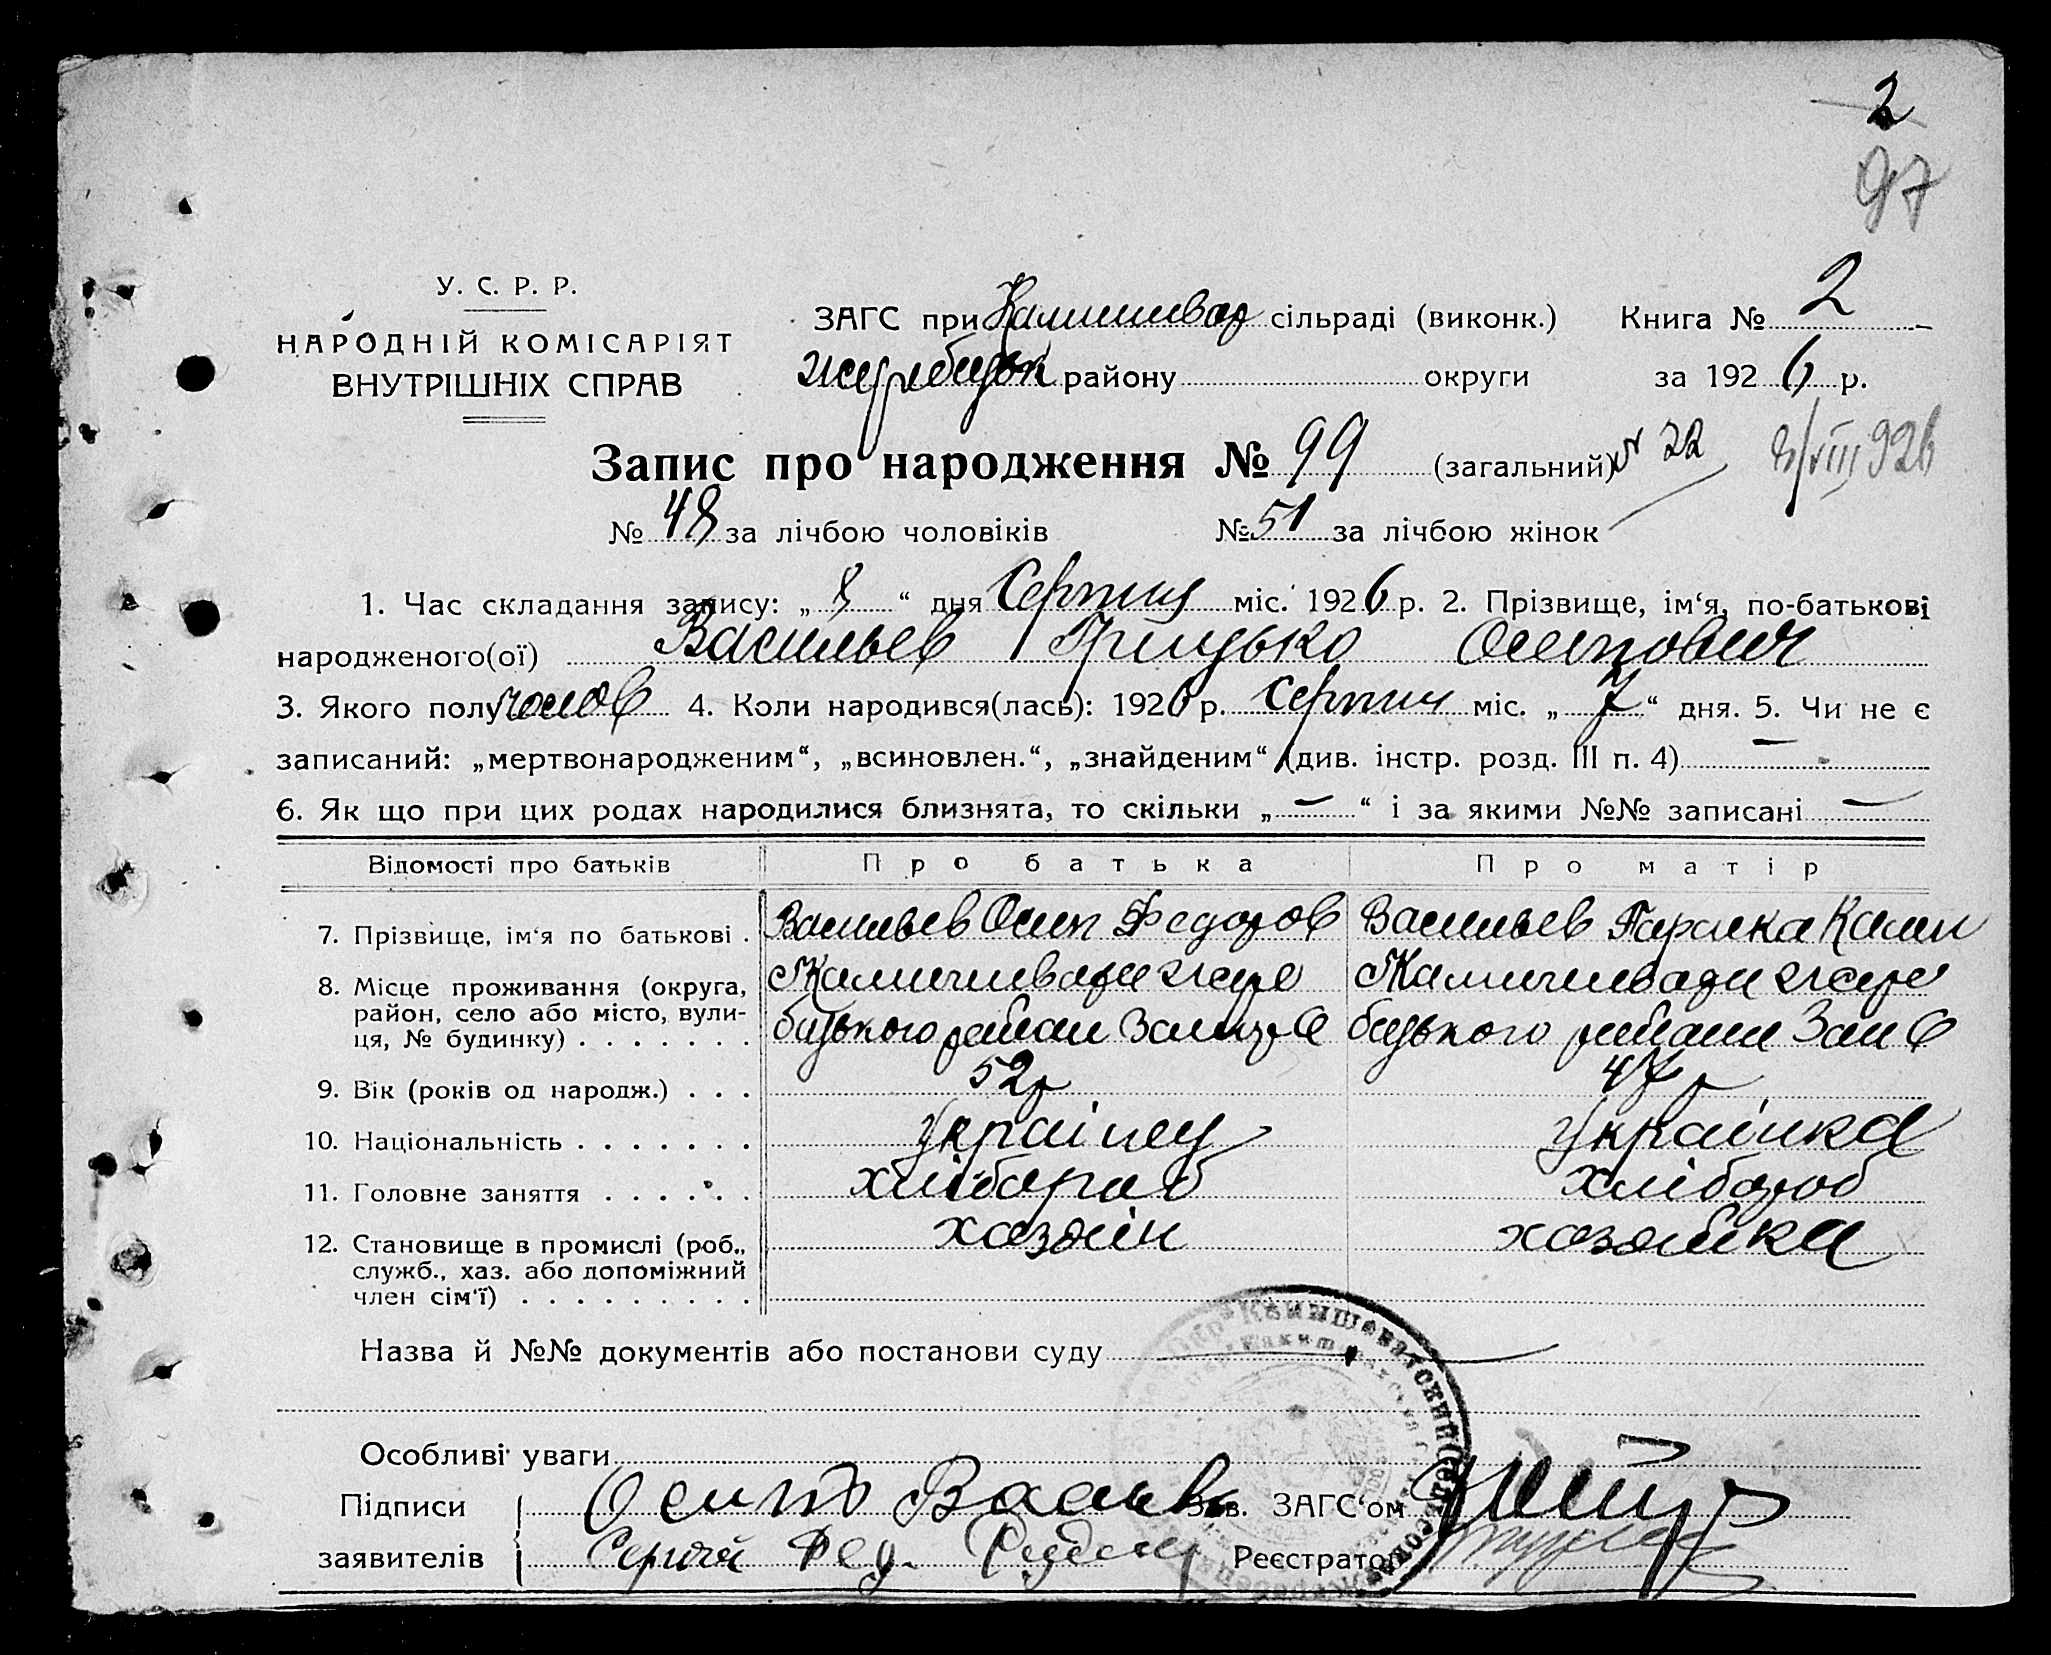 2
97
У. С. Р. Р.
НАРОДНІЙ КОМІСАРІЯТ
ВНУТРІШНІХ СПРАВ
ЗАГС при Камишевар сільраді (виконк.) Книга № 2
жеребецьк району округи за 1926 р.
Запис про народження № 99 (загальний) № 22 8/VIII 926
№ 48 за лічбою чоловіків № 51 за лічбою жінок
1. Час складання запису: „8“ дня Серпня міс. 1926 р. 2. Прізвище, ім‘я, по-батькові
народженого(ої) Васильев Грицько Осипович
3. Якого полу чолов 4. Коли народився(лась): 1926 р. серпня міс. „7“ дня. 5. Чи не є
записаний: „мертвонародженим“, „всиновлен.“, „знайденим“ (див. інстр. розд. III п. 4) —
6. Як що при цих родах народилися близнята, то скільки „—“ і за якими №№ записані —
Відомості про батьків Про батька Про матір
7. Прізвище, ім‘я по батькові . Васильев Осип Федоров Васильев Параска Калин
8. Місце проживання (округа,
район, село або місто, вули-
ця, № будинку) . . . . . . .
9. Вік (років од народж.) . . . 52 р 47 р
10. Національність . . . . . . . Українец Українка
11. Головне заняття . . . . . . хлібороб хлібороб
12. Становище в промислі (роб., хозяін хозяйка
служб., хаз. або допоміжний
член сім‘ї) . . . . . . . . .
Назва й №№ документів або постанови суду
Особливі уваги
Підписи Осип Василев Зав. ЗАГС‘ом
заявителів Сергій Фед. Реєстратор